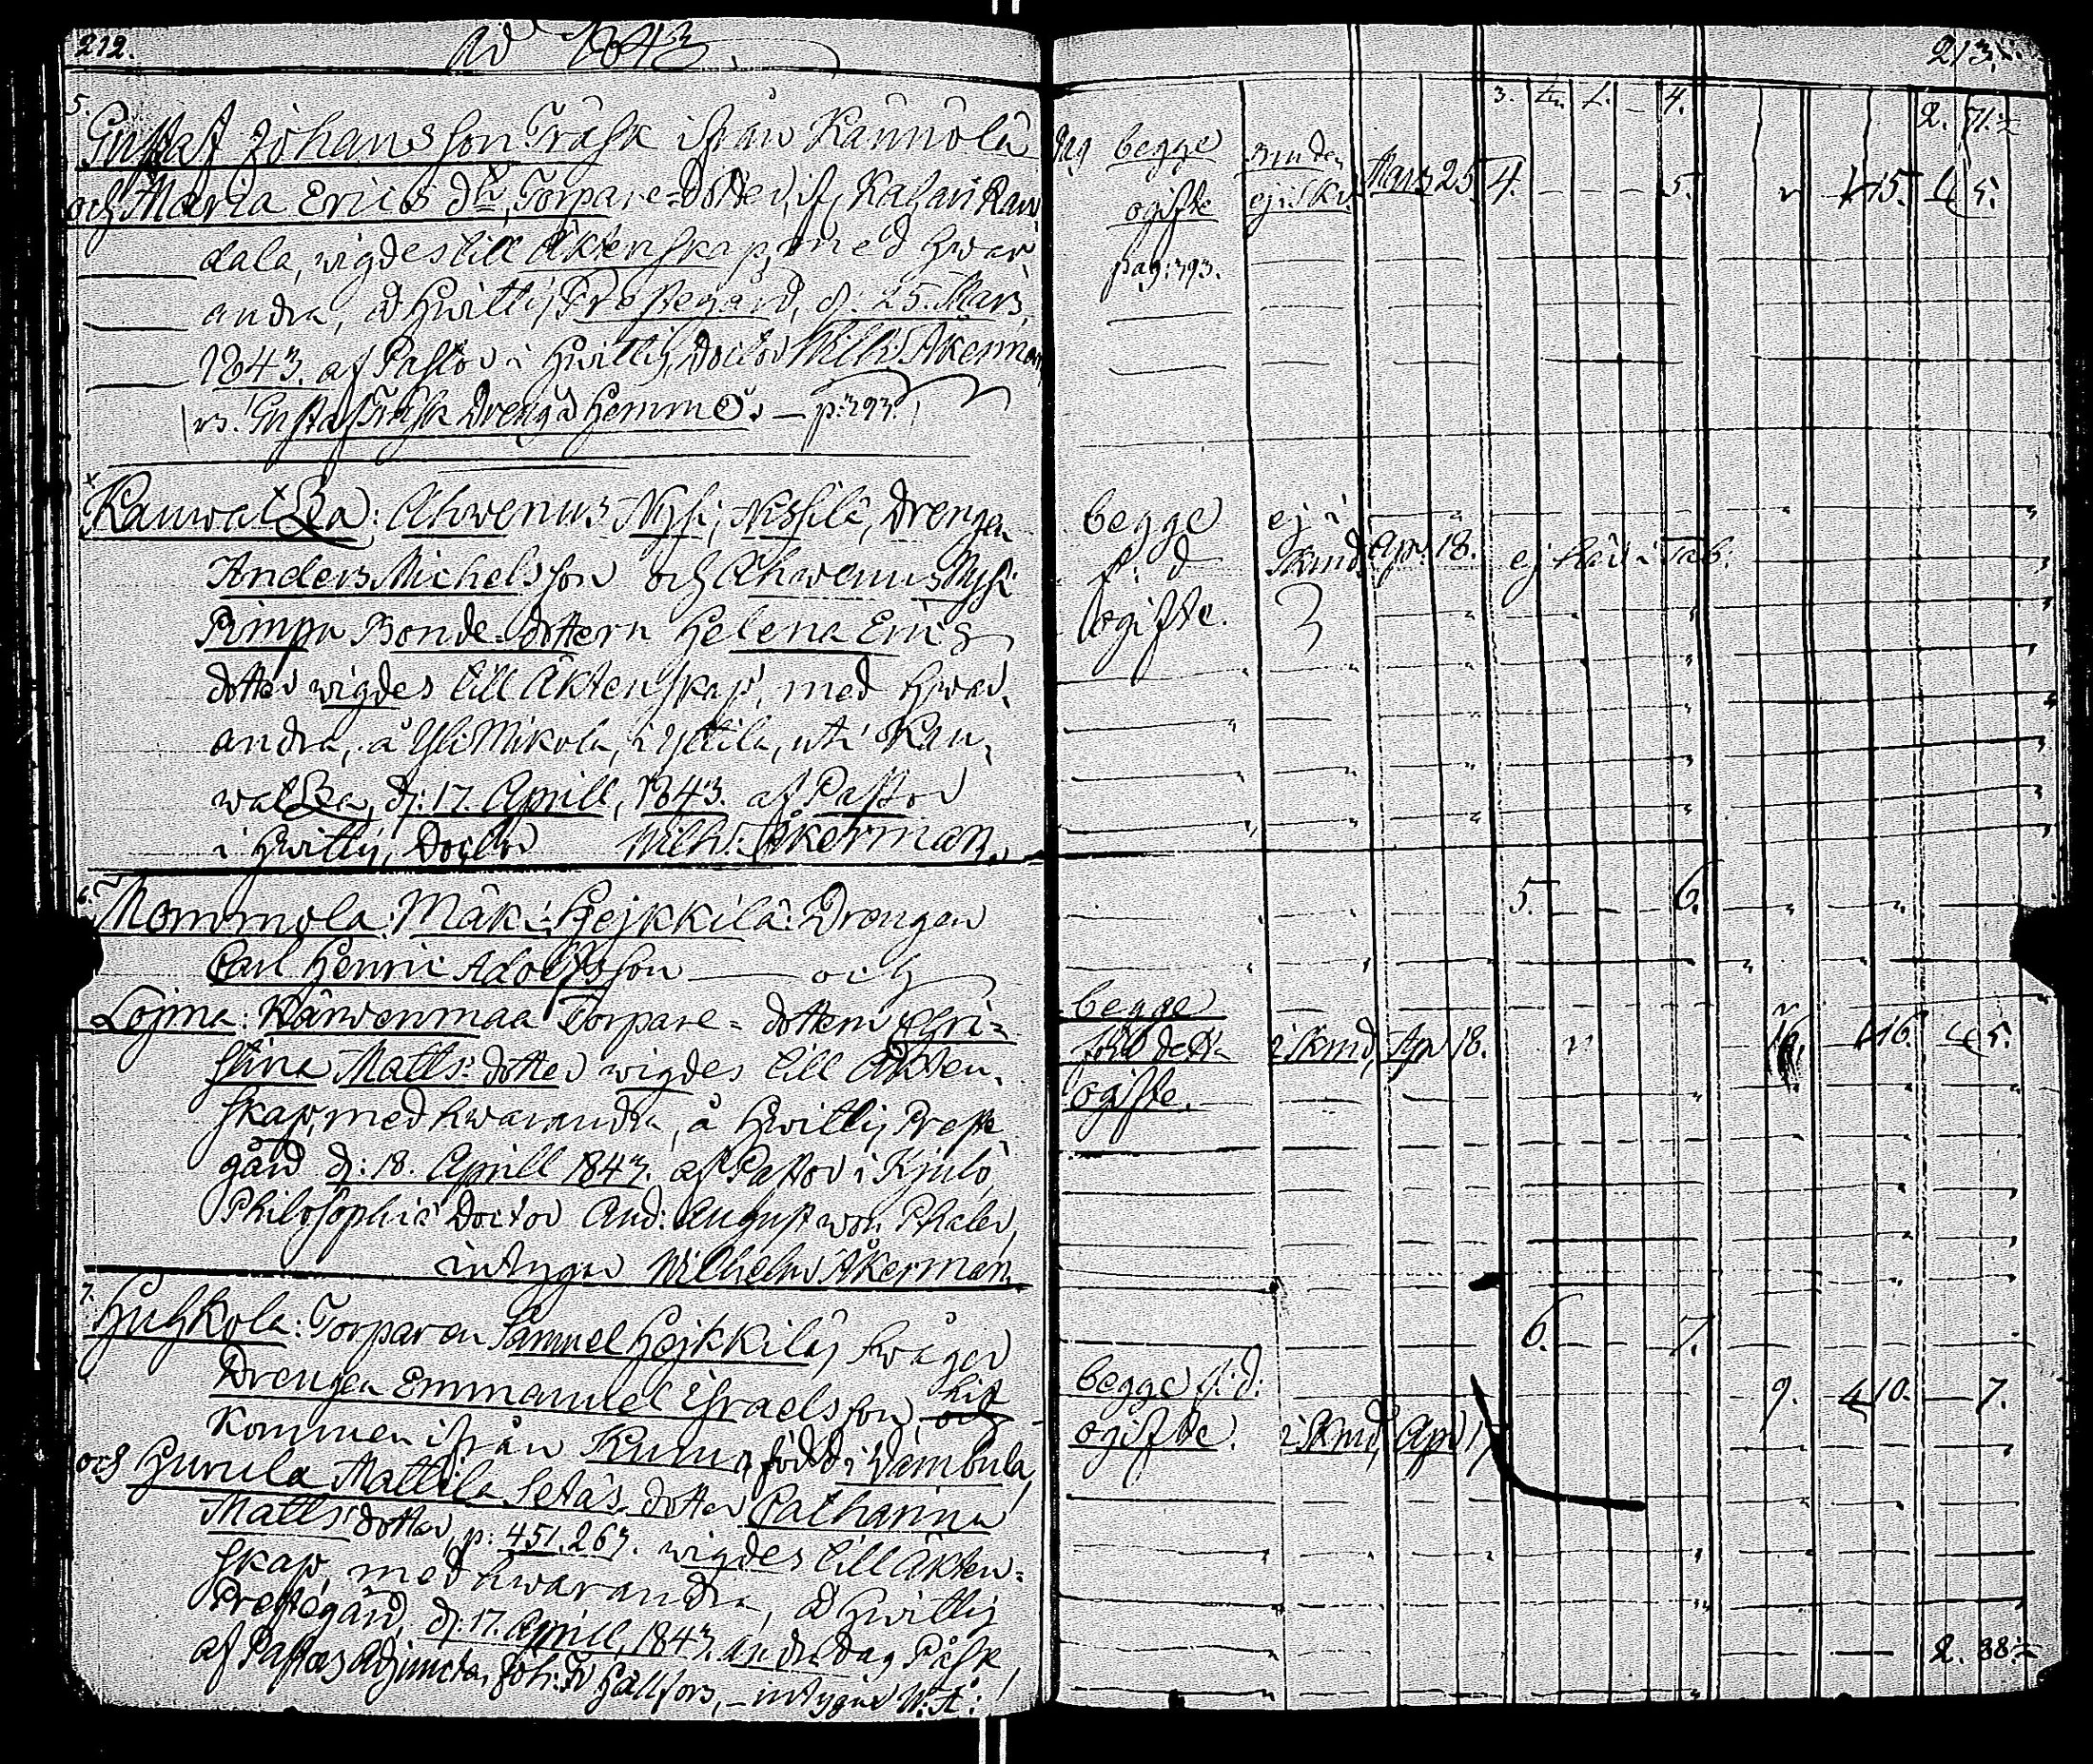 212.
Ad 1843.
5.
Gustaf Johansson Träsk ifrån Kännölä
och Maria Erics dr, Torpare-dotter, if, Kahari Ran,
dala, wigdes till Äktenskap, med hwar
andra, å Hwittis Prestegård, d: 25. Mars,
1843. af Pastor i Hwittis, Doctor Wilh: Åkerman,
vs: Gustaf Träsk Dreng å Hemmö. — p: 393.
Kauwatza: Ahwenus Nysi; Yssilä, Drengen
Anders Michelsson och Ahwenus Nysi:
Pimpu Bonde-dottern Helena Erics
dotter wigdes till Äktenskap, med hwar,
andra, å Yli Mikola, i Yttilä, uti Kau,
watza, d: 17. Aprill, 1843. af Pastor
i Hwittis, Doctor Wilh: Åkerman.
6.
Mommola: Mäki: Hejkkilä: Drengen
Carl Henric Adolfsson — och
Lojma: Kärwenmaa Torpare-dottern Chri=
stina Matts:dotter wigdes till Äkten,
skap, med hwarandra, å Hwittis Preste
gård d: 18. Aprill 1843. af Pastor i Kjulo,
Philosophiæ Doctor And: August von Pfaler,
intygar Wilhelm Åkerman.
7.
Huhkola: Torparen Samuel Hejkkiläs Swåger
Drengen Emmanuel Israelsson, hit
kommen ifrån Kumo, född i Wambula,
och Hurula Mattila Setäs dotter Catharina
Matts:dotter, p: 451. 263. wigdes till Äkten=
skap, med hwarandra, å Hwittis
Prestegård, d: 17. Aprill, 1843. andra dag Påsk,
af Pastors Adjuncten Joh: Fr Hällfors, — intygar W: Å:
213.
3. 4.
2. 71.
begge ogifte pag: 393.
ej i Skr. Mars 25. 4. 5. 15. 5.
begge f: d ogifte.
ej i Skmd. Apr. 18. ej här i Tab.
5. 6.
begge
ogifte.
i Skmd, Apr 18. 16. 5.
6. 7.
begge f: d:
ogifte. i Skmd, Apr 9. 10. 7.
2. 88.